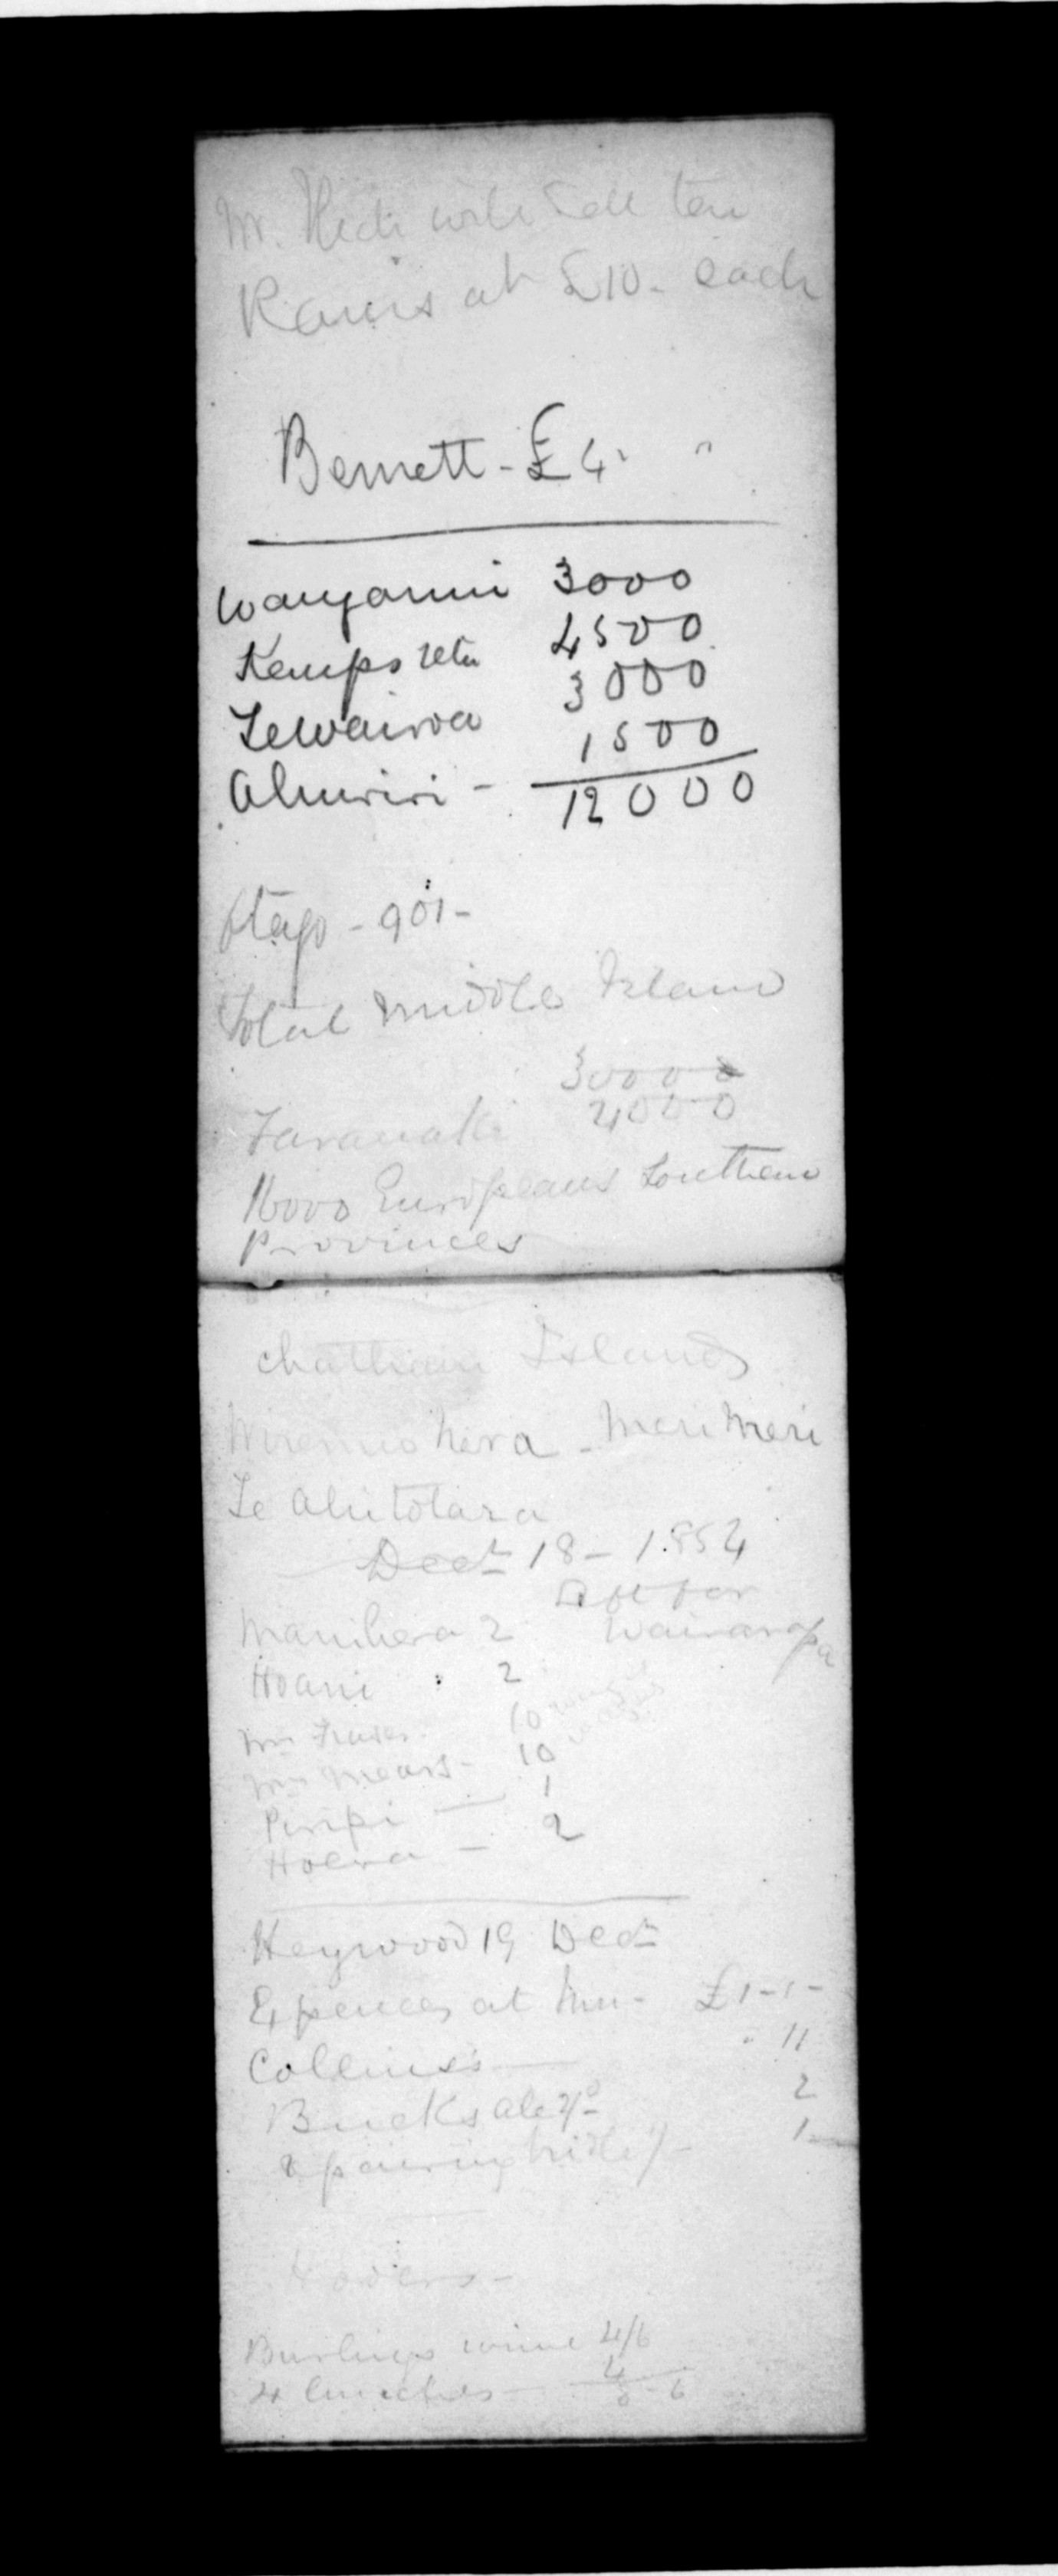 Mr. will Sell ten
Rams at £10 - each
Bennett - £4. "
Wanganui 3000
Kemps 4500
Te Wairoa 3000
Ahuriri - 1500
12000
Otago - 901 -
Total Middle Island
30000
Taranaki 2000
16000 Europeans Southern
Provinces
Chatham Islands
Wiremu Nera - Meri Meri
Te Ahitotara
Decr 18 - 1854
Manihera 2 Wairarapa
Hoani : 2
Mr Fraser 10
Mr Mears - 10
Piripi — 1
Hoera — 2
Heywood 19 Decr
Expences at Inn - £1-1-
Collins's — " 11
Bucks ale 2/- 2
repairing bridle 1/- 1
Burlings wine 4/6
4 lunches — 4
8-6